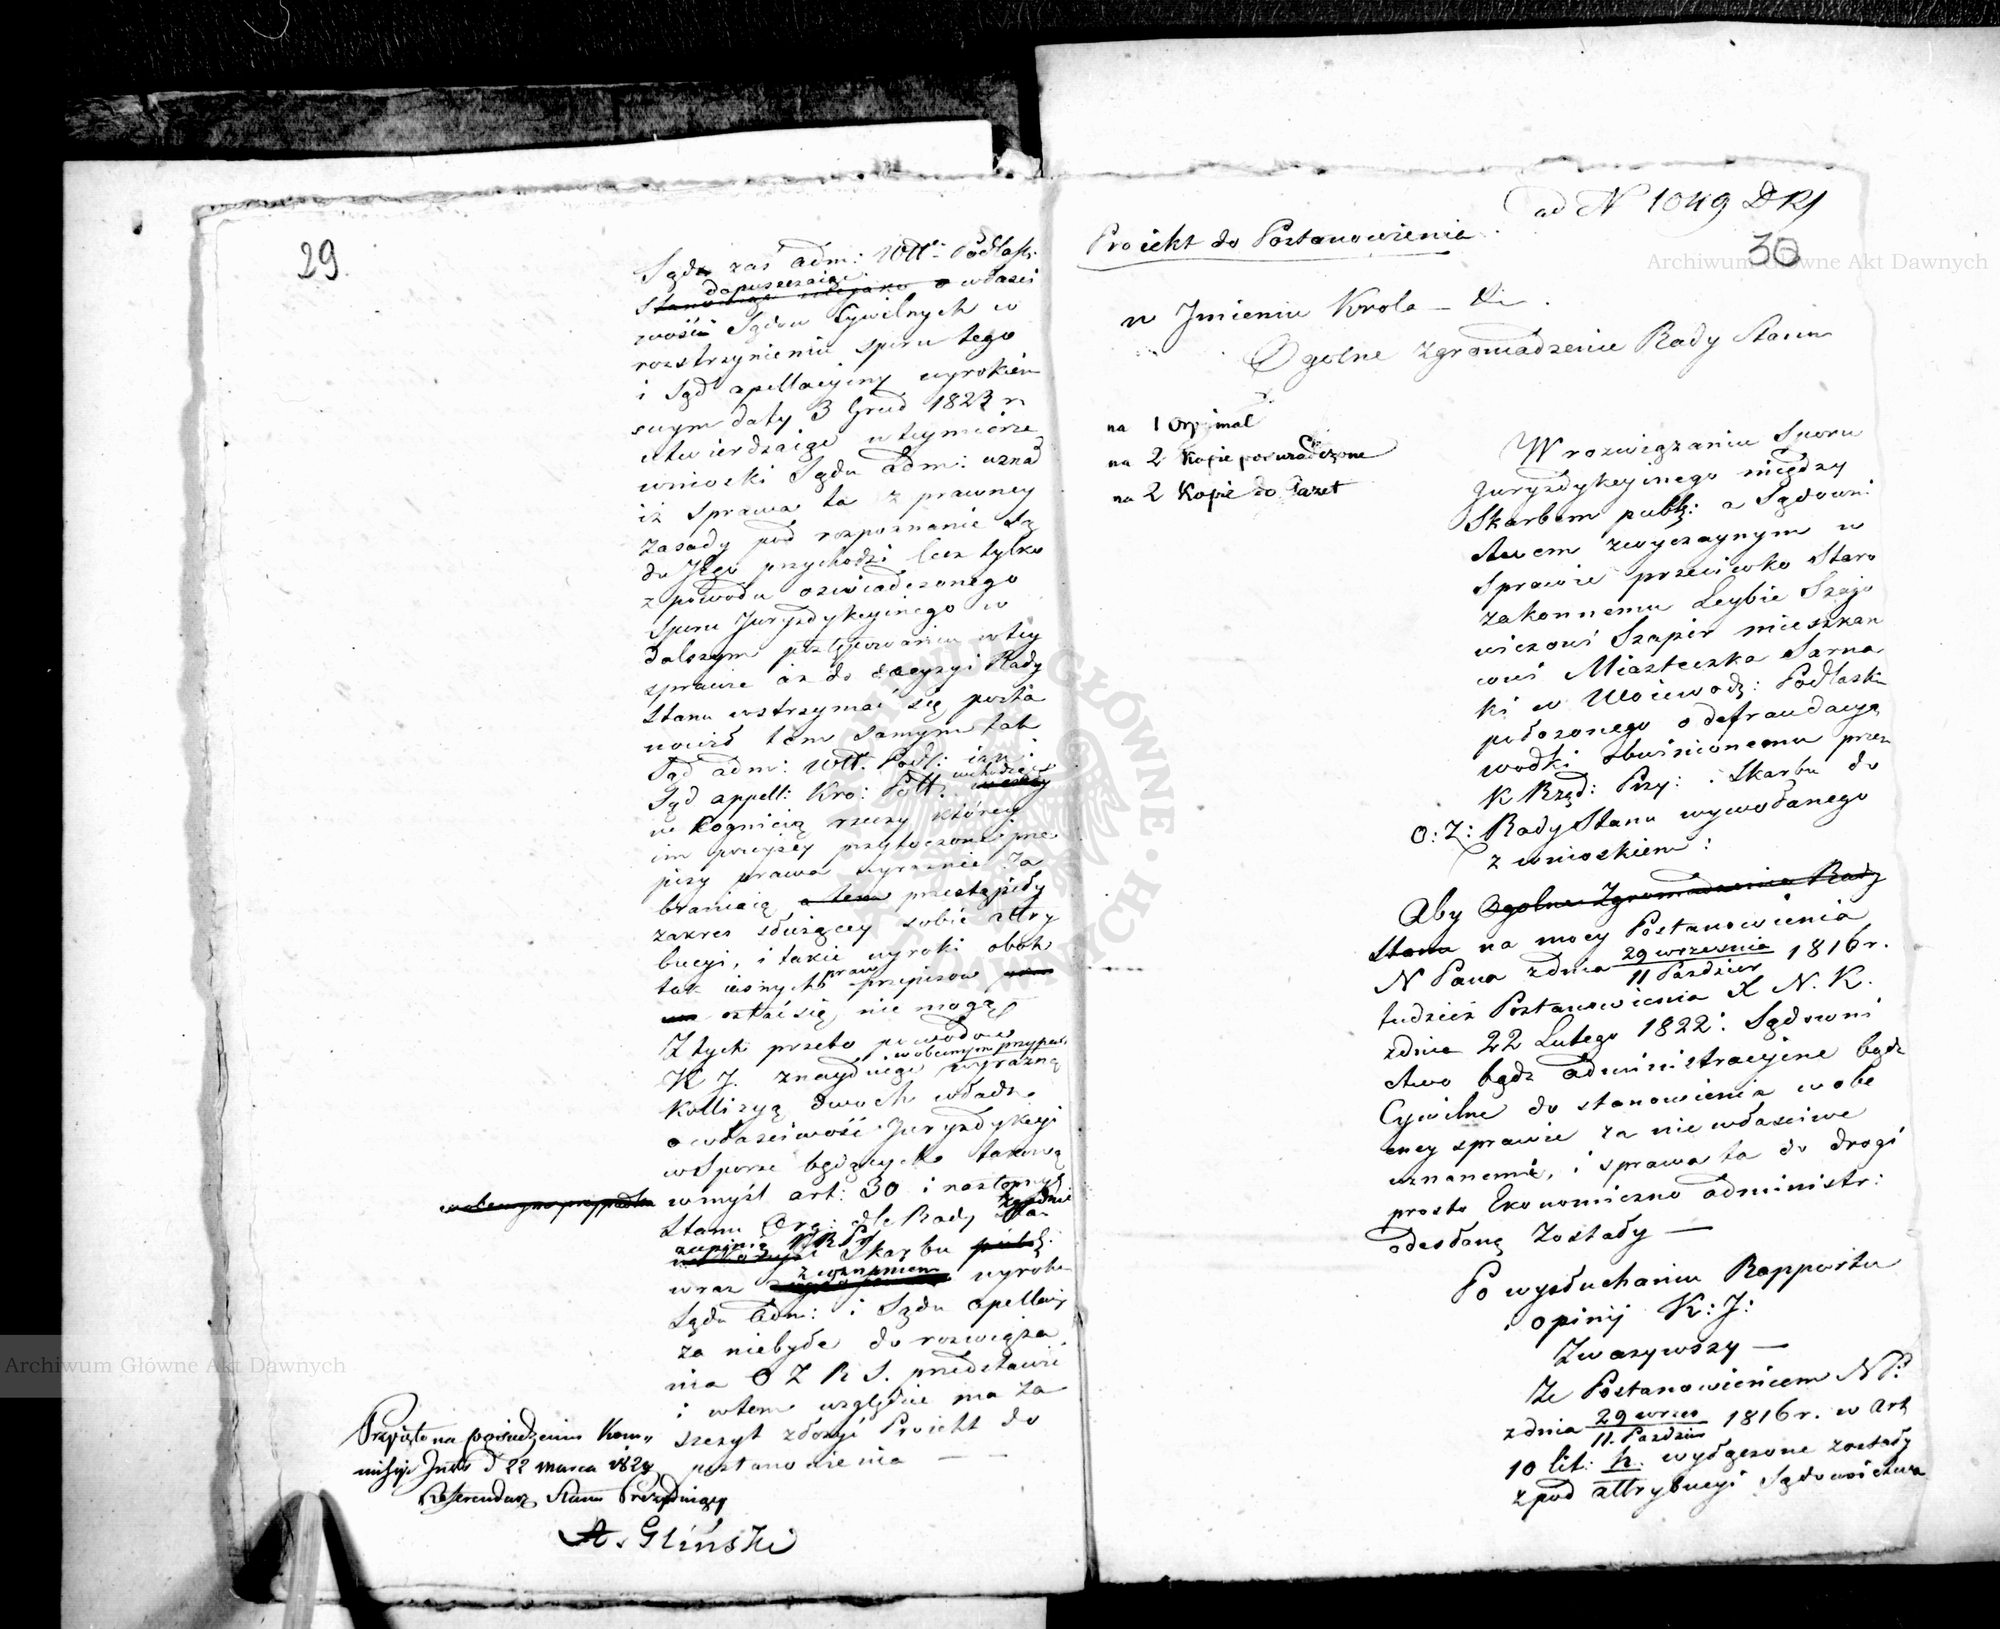 29.
Sąd zaś adm: Wdt Podlask:
dopuszczaiąc
o właści
wości Sądów Cywilnych w
rozstrzynieniu sporu tego
i Sąd apellacyiny wyrokiem
swym daty 3 Grud 1823 r.
utwierdzaiąc wteymierze
wnioski Sądu adm: uznał
iż sprawa ta z prawney
zasady pod rozpoznanie Są
du Jego przychodzi lecz tylko
z powodu oświadczonego
Sporu Juryzdykcyinego w
dalszym postępowaniu wtey
sprawie aż do decyzyi Rady
Stanu wstrzymać się posta
nowił tem samym tak
Sąd adm: Wdt. Podl: iak i
Sąd appell: Kro: Pol: wchodząc
w Kognicią rzeczy którey
im powyżey przytoczone prze
pisy prawa wyraźnie za
braniaią a tem przestąpiły
zakres służącey sobie attry
bucyi, i takie wyroki obok
tak iasnych praw przepisów
ostać się nie mogą —
Z tych przeto powodów
w obecnym przypad:
K J. znayduiąc wyraźną
Kollizyą dwóch władz
o właściwość Juryzdykcyi
wsporze będących takową
w obecnym przypadku
wmyśl art: 30 i następnych
Stanu Org: dla Rady Sta- zgodnie
z opinią K R P i Skarbu publ:
wraz z uznaniem wyroku
Sądu Adm: i Sądu apellacyi
za niebyłe do rozwiąza
nia O Z R S. przedstawić
i wtem względzie ma za
szczyt złożyć Proiekt do
postanowienia — —
Przyięto na posiedzeniu Kom„
missyi Instr d 22 marca 1824
Referendarz Stanu Prezyduiący
A. Gliński
ad N 1049 DRS
30
Proiekt do Postanowienia.
w Jmieniu Krola — &c.
Ogolne zgromadzenie Rady Stanu
na 1 Oryginał
na 2 Kopie poswiadczone
na 2 Kopie do Gazet
W rozwiązaniu Sporu
Juryzdykcyinego między
Skarbem publ: a Sądowni
ctwem zwyczaynym w
Sprawie przeciwko Staro
zakonnemu Leybie Szajo
wiczowi Szapir mieszkań
cowi Miasteczka Sarna
ki w Woiewodz: Podlaskie
położonego o defraudacyą
wodki obwinionemu przez
K Rząd: Przy: i Skarbu do
O: Z: Rady Stanu wywołanego
z wnioskiem:
Aby Ogolne Zgromadzenie Rady
Stanu na mocy Postanowienia
N Pana zdnia 29 września / 11 Paździer 1816 r.
tudzież Postanowienia X N. K.
zdnia 22 Lutego 1822. Sądowni
ctwo bądź administracyine bądź
Cywilne do stanowienia w obe
cney sprawie za niewłaściwe
uznanemi, i sprawa ta do drogi
prosto Ekonomiczno administr:
odesłaną została —
Po wysłuchaniu Rapportu
i opinij K: J:
Zważywszy —
Że Postanowieniem N P.
zdnia 29 wrześ / 11. Paździer 1816 r. w Art
10 lit: h. wyłączone zostały
z pod attrybucyi Sądownictwa
Archiwum Główne Akt Dawnych
Archiwum Główne Akt Dawnych
ARCHIWUM GŁÓWNE AKT DAWNYCH